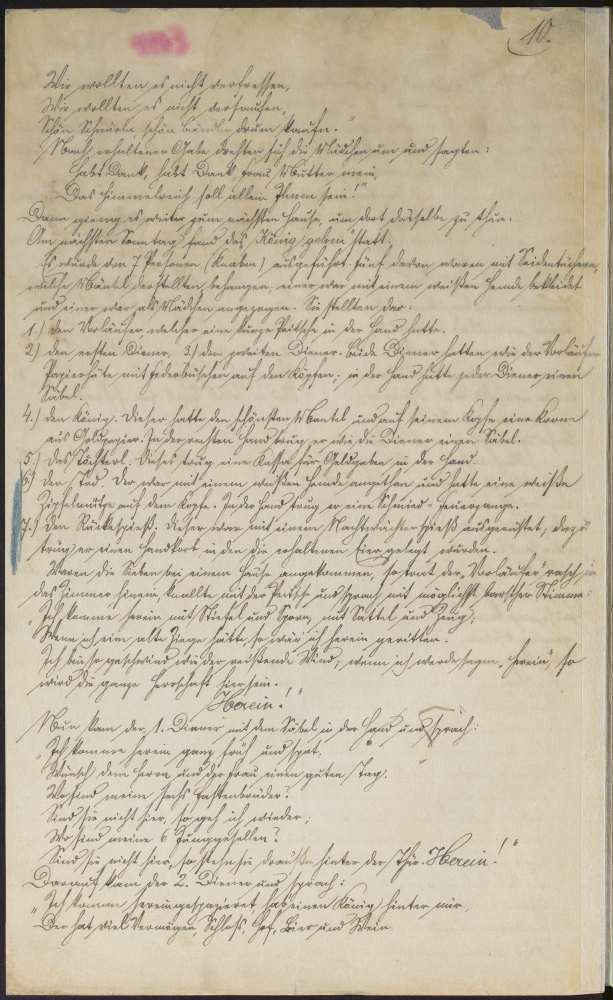 10.
Wir wollten es nicht verfressen,
Wir wollten es nicht versaufen,
Schön Schnürn, schön Bänder drum kaufn."
Nach erhaltener Gabe drehten sich die Mädchen um und sagten:
Habt Dank, habt Dank, Frau Mutter mein,
Das Himmelreich soll allein Ihnen sein!"
Dann gieng es weiter zum nächsten Hause, um dort dasselbe zu thun.
Am nächsten Sonntag fand das "Königgehen" statt.
Es wurde von 7 Personen (Knaben) aufgeführt. Fünf davon waren mit Seidentüchern,
welche Mäntel darstellten behangen, einer war mit einem weißen Hemde bekleidet
und einer war als Mädchen angezogen. Sie stellten dar:
1.) den Vorläufer welcher eine kurze Peitsche in der Hand hatte.
2.) den ersten Diener, 3.) den zweiten Diener. Beide Diener hatten wie der Vorläufer
Papierhüte mit Federbüschen auf den Köpfen; in der Hand hatte jeder Diener einen
Säbel.
4.) den König. Dieser hatte den schönsten Mantel und auf seinem Kopfe eine Korone
aus Goldpapier. In der rechten Hand trug er wie die Diener einen Säbel.
5.) Das Töchterl. Dieses trug eine Kassa für Geldgaben in der Hand.
6.) den Tod. Der war mit einem weißen Hemde angethan und hatte eine weiße
Zipfelmütze auf dem Kopfe. In der Hand trug er eine Schmied-Feuerzange.
7.) Den Rückespieß. Dieser war mit einem Nachtwächter Spieß ausgerüstet, dazu
trug er einen Handkorb in den die erhaltenen Eier gelegt wurden.
Waren die Sieben bei einem Hause angekommen, so trat der "Vorläufer" rasch in
das Zimmer hinein, knallte mit der Peitsche und sprach mit möglichst barscher Stimme:
"Ich komme herein mit Stiefel und Sporn, mit Sattel und Zeug,
Wenn ich eine alte Ziege hätte, so wär ich herein geritten.
Ich bin so geschwind wie der reißende Wind, wenn ich werde sagen "Herein", so
wird die ganze Herrschaft hier sein.
Herein!"
Nun kam der 1. Diener mit dem Säbel in der Hand und sprach:
"Ich komme herein ganz früh und spat,
Wünsch dem Herrn und der Frau einen guten Tag.
Wo sind meine sechs Fastenbrüder?
Sind sie nicht hier, so geh ich wieder;
Wo sind meine 6 Junggesellen?
Sind sie nicht hier, so stehn sie draußen hinter der Thür. Herein!"
Darauf kam der 2. Diener und sprach:
"Ich komme hereingespazieret hab einen König hinter mir,
Der hat viel Vermögen, Schloß, Hof, Bier und Wein.